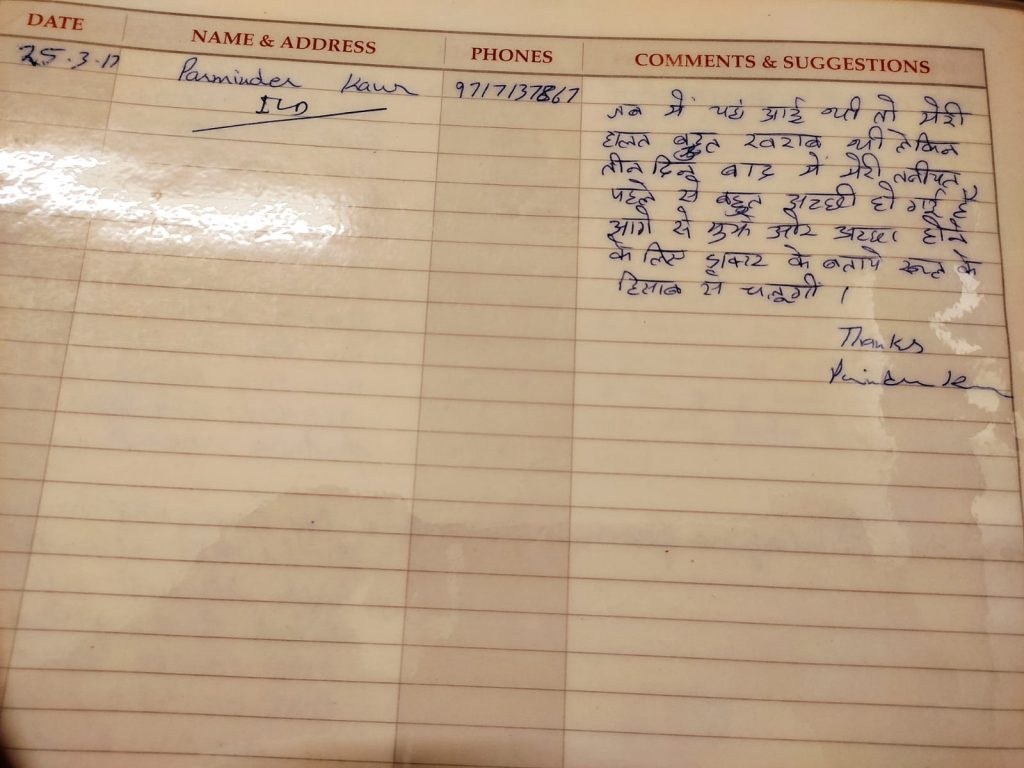 DATE NAME & ADDRESS PHONES COMMENTS & SUGGESTIONS
25.3.17 Parminder Kaur 9717137867
ILD
जब में यहां आई थी तो मेरी
हालत बहुत खराब थी लेकिन
तीन दिन बाद में मेरी तबीयत
पहले से बहुत अच्छी हो गई है
आगे से मुझे और अच्छा होने
के लिए डाक्टर के बताये के
हिसाब से चलूगी ।
Thanks